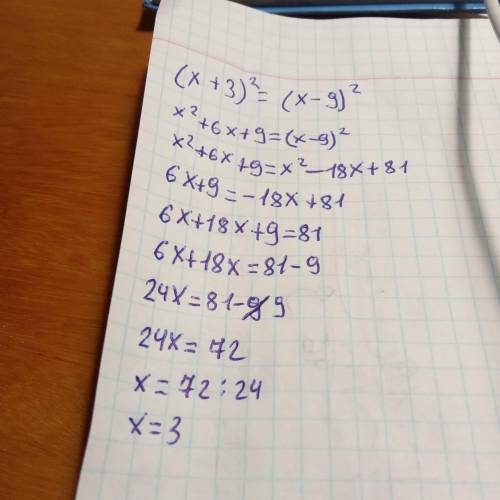 (x+3)²=(x-9)²
x²+6x+9=(x-9)²
x²+6x+9=x²-18x+81
6x+9=-18x+81
6x+18x+9=81
6x+18x=81-9
24x=81-9
24x=72
x=72:24
x=3